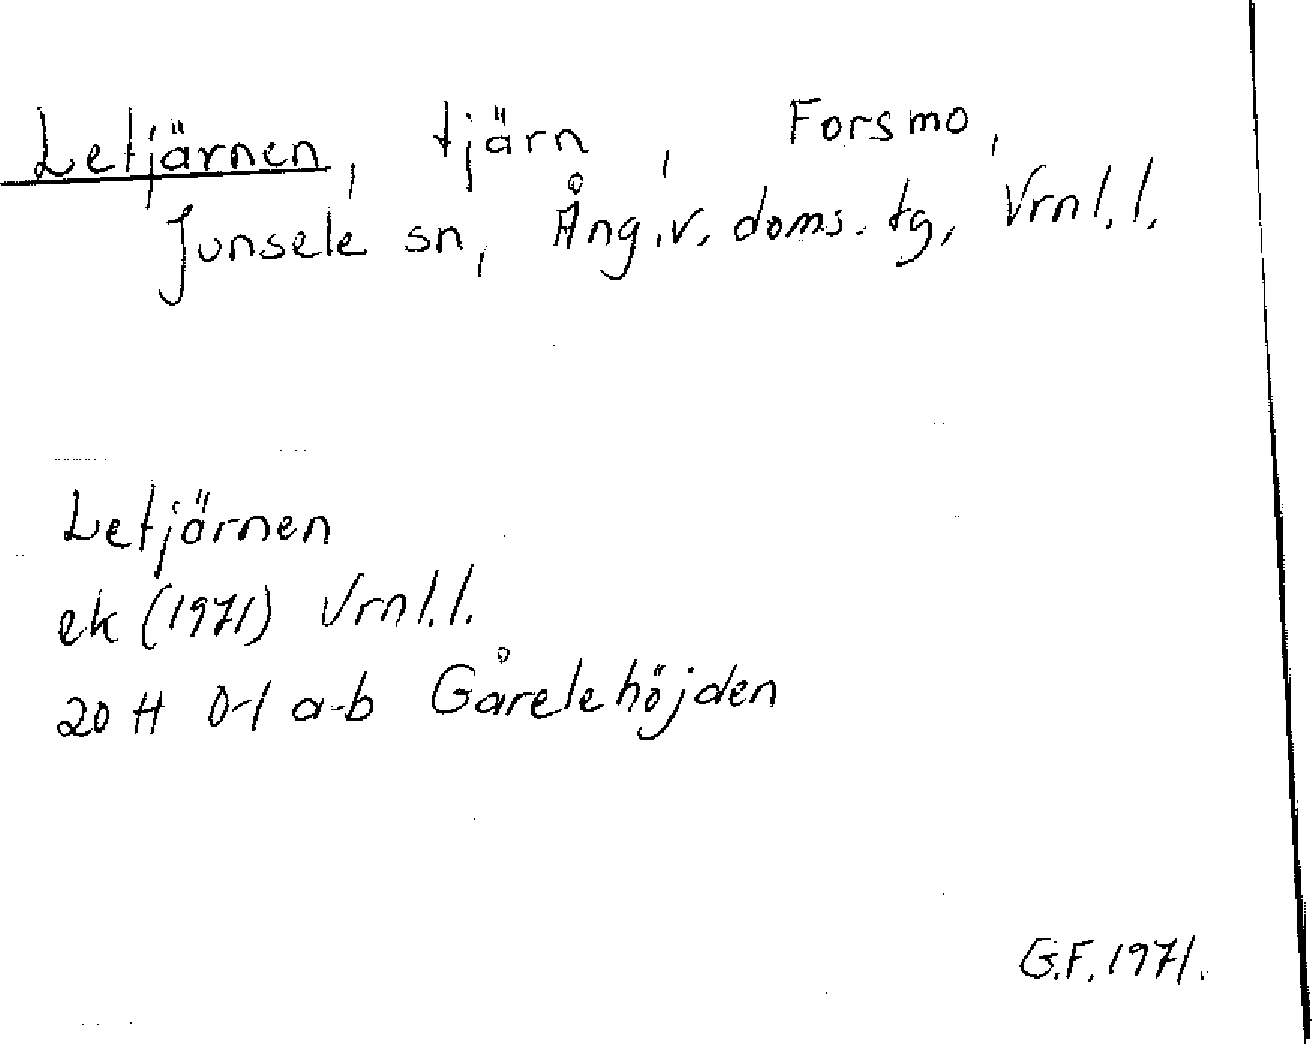 Letjärnen, tjärn, Forsmo,
Junsele sn, Ång.v. doms. tg, Vrnl.l.
Letjärnen
ek (1971) Vrnl.l.
20 H 0-1 a-b Gårelehöjden
G.F. 1971.